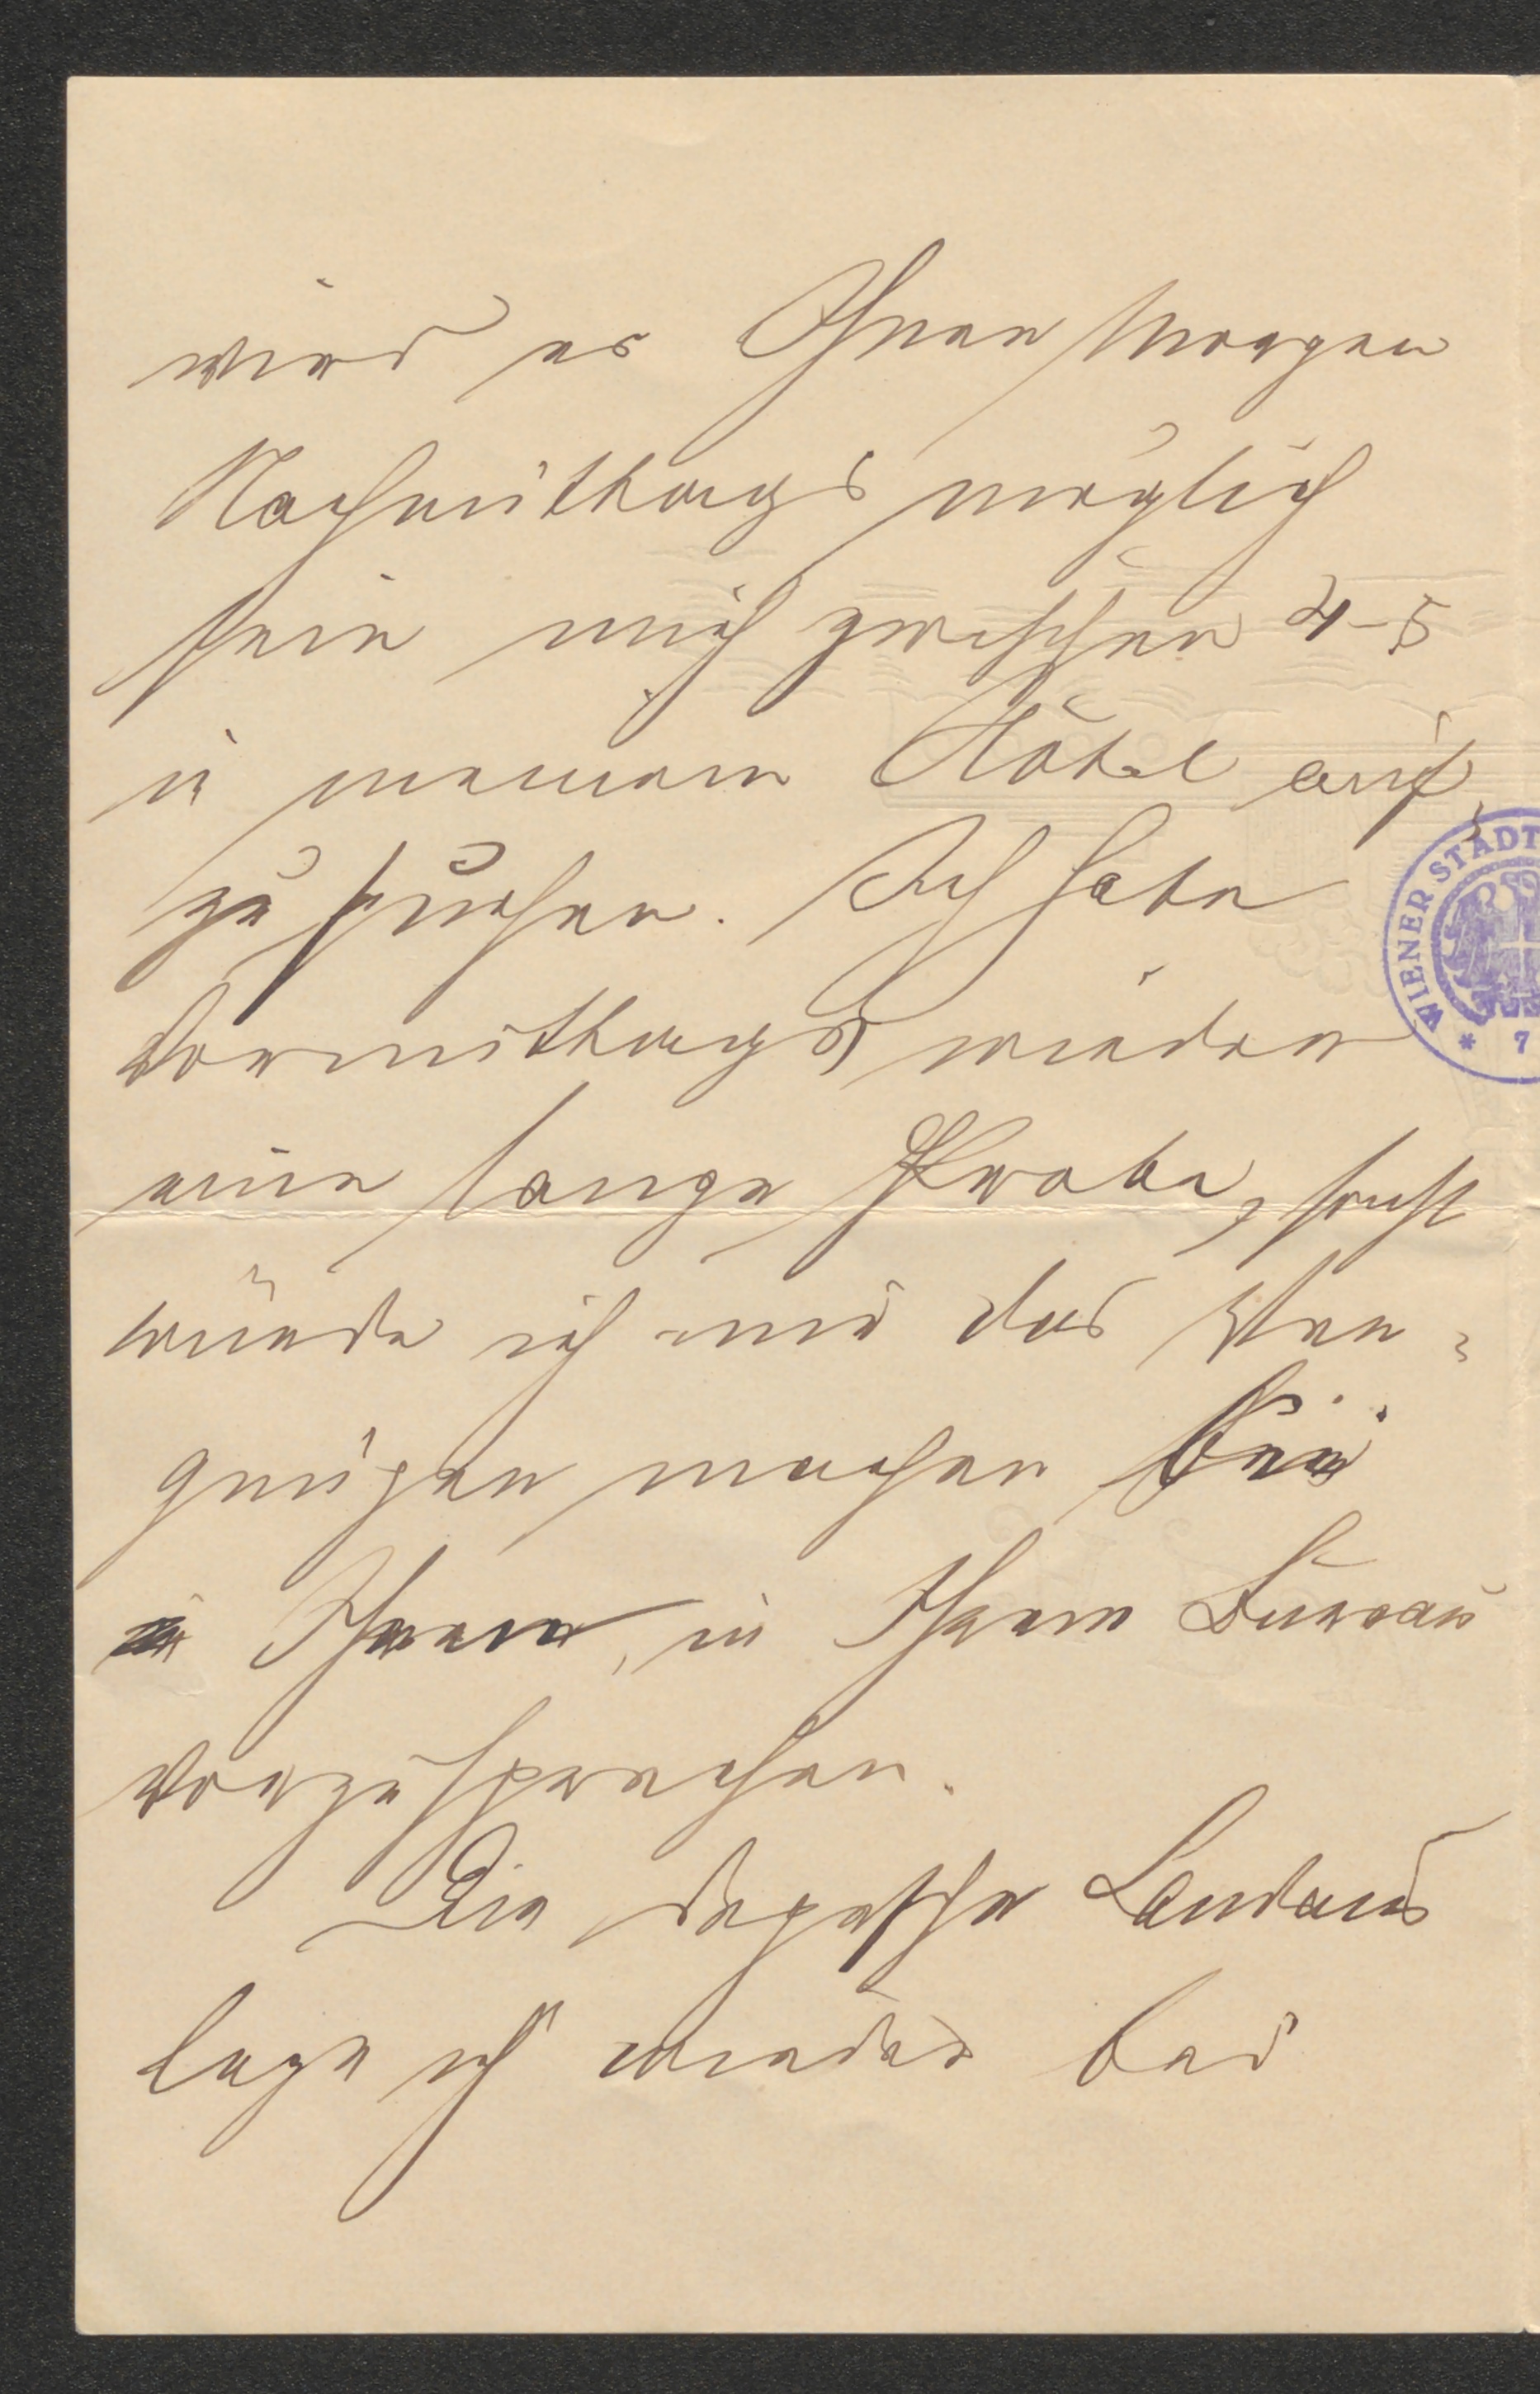 wird es Ihnen Morgen
Nachmittags möglich
sein mich zwischen 4-5
in meinem Hôtel auf
zu suchen. Ich habe
Vormittags wieder
eine lange Probe, sonst
würde ich mir das Ver=
gnügen machen bei
Ihnen, in Ihrem Bureau
vorzusprechen.
Die Depesche Landaus
lege ich wieder bei
WIENER STADT
* 7